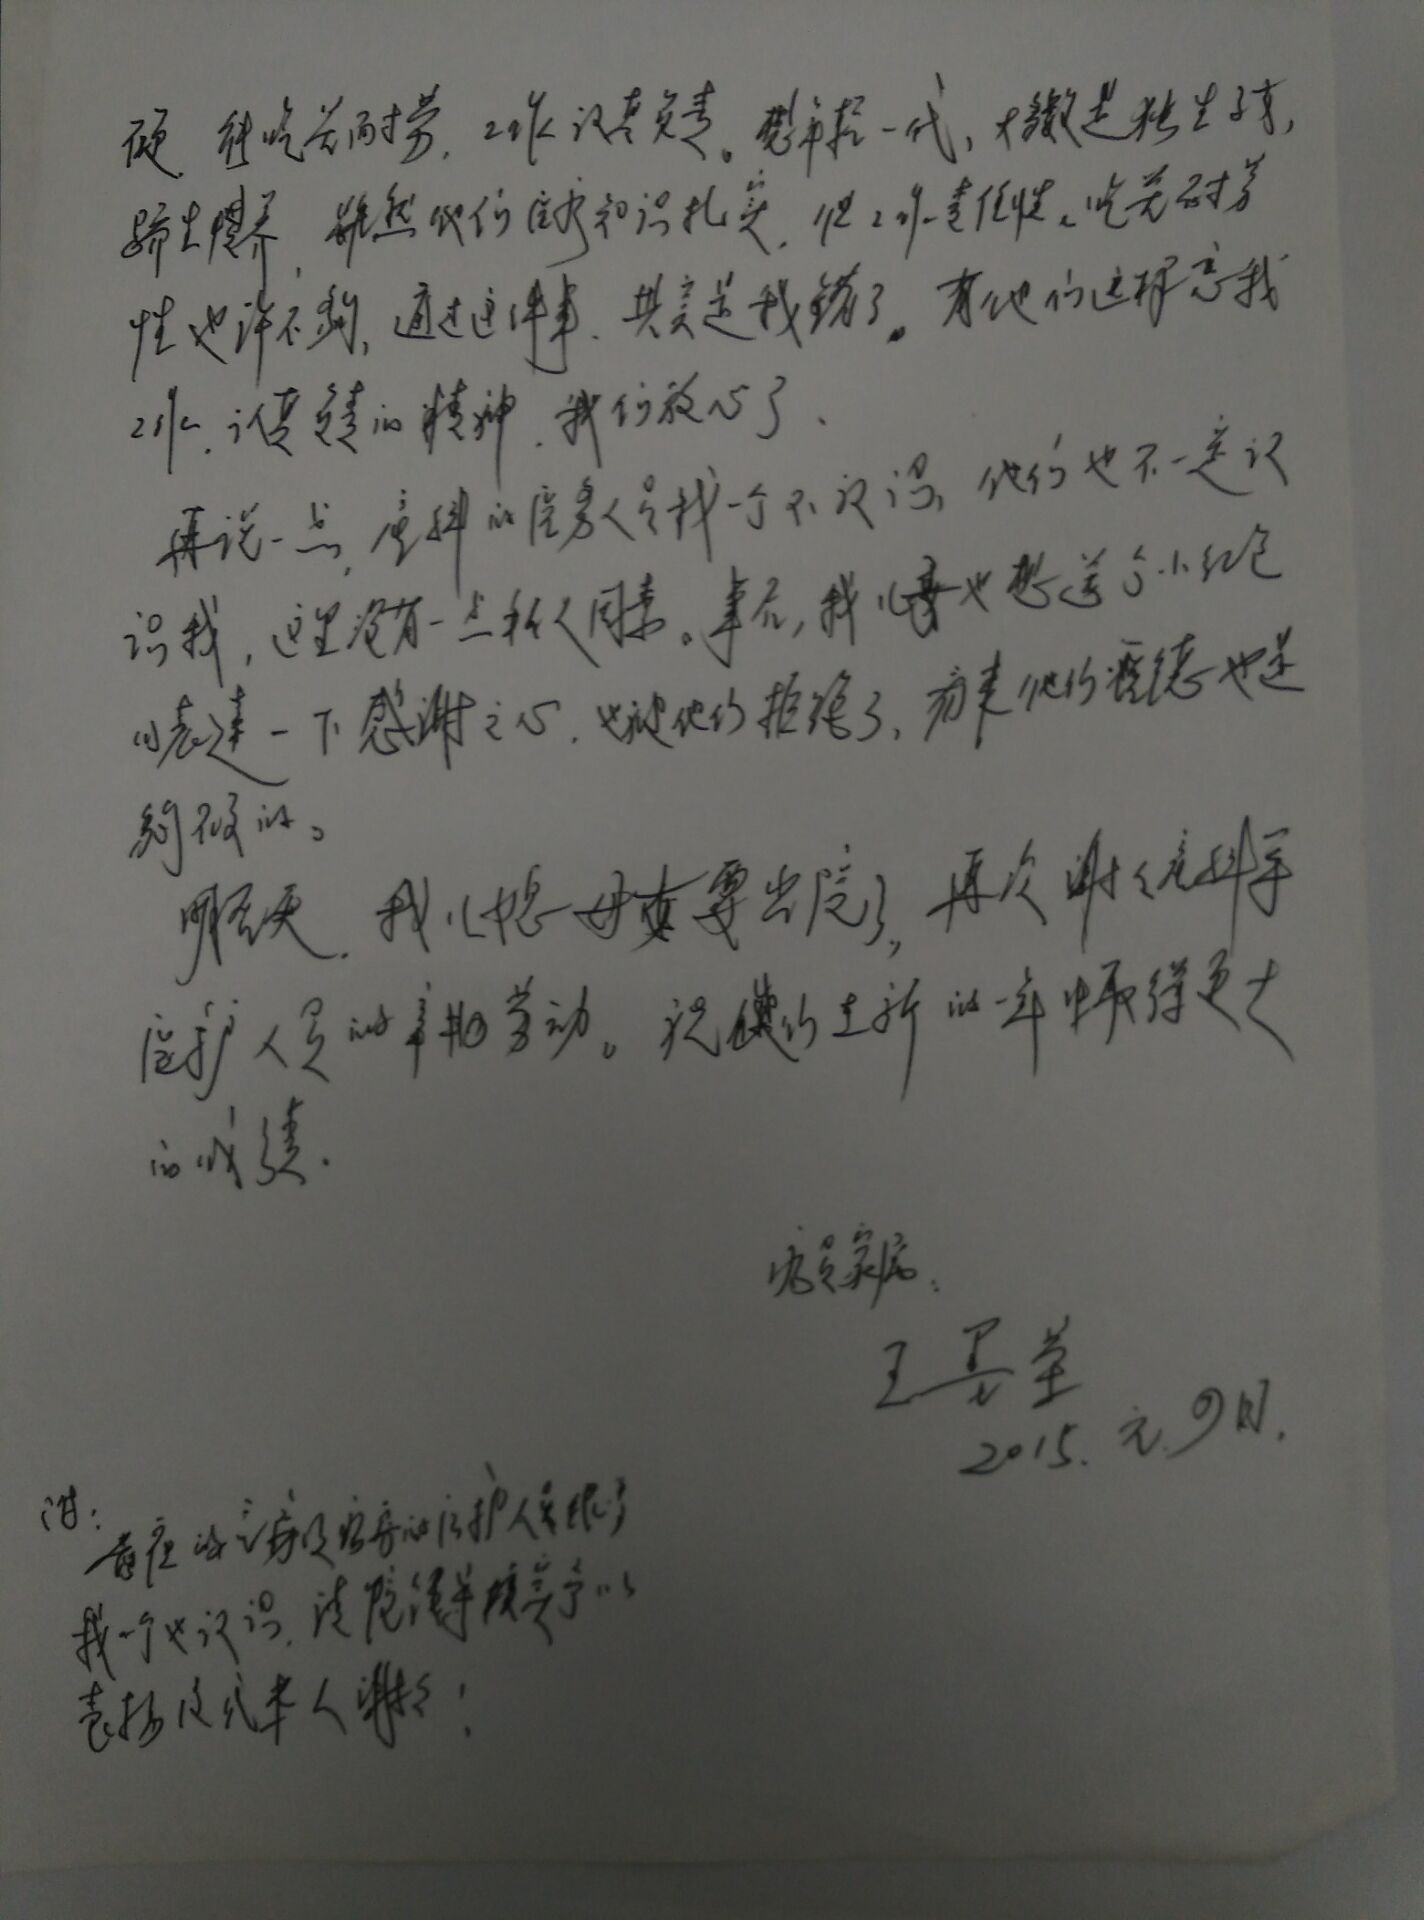 硬、能吃苦耐劳，工作认真负责。想年轻一代，大都是独生子女，
娇生惯养，虽然他们医学知识扎实，但工作责任性、吃苦耐劳
性也许不夠，通过这件事、其实是我错了。有他们这样忘我
工作、认真负责的精神，我们放心了、
再说一点，产科的医务人员我一个不认识，他们也不一定认
识我，这里没有一点私人因素。事后，我儿也想送个小红包
以表达一下感谢之心，也被他们拒绝了，看来他们医德也是
夠硬的。
明天，我儿媳母女要出院了，再次谢谢产科
医护人员的辛勤劳动。祝他们在新的一年中取得更大
的成绩.
病员家属：
王荣
2015.元.9日.
注：
产的诊房及病房的医护人员
我一个也认识，请院领导核实予以
表扬及代本人谢谢！